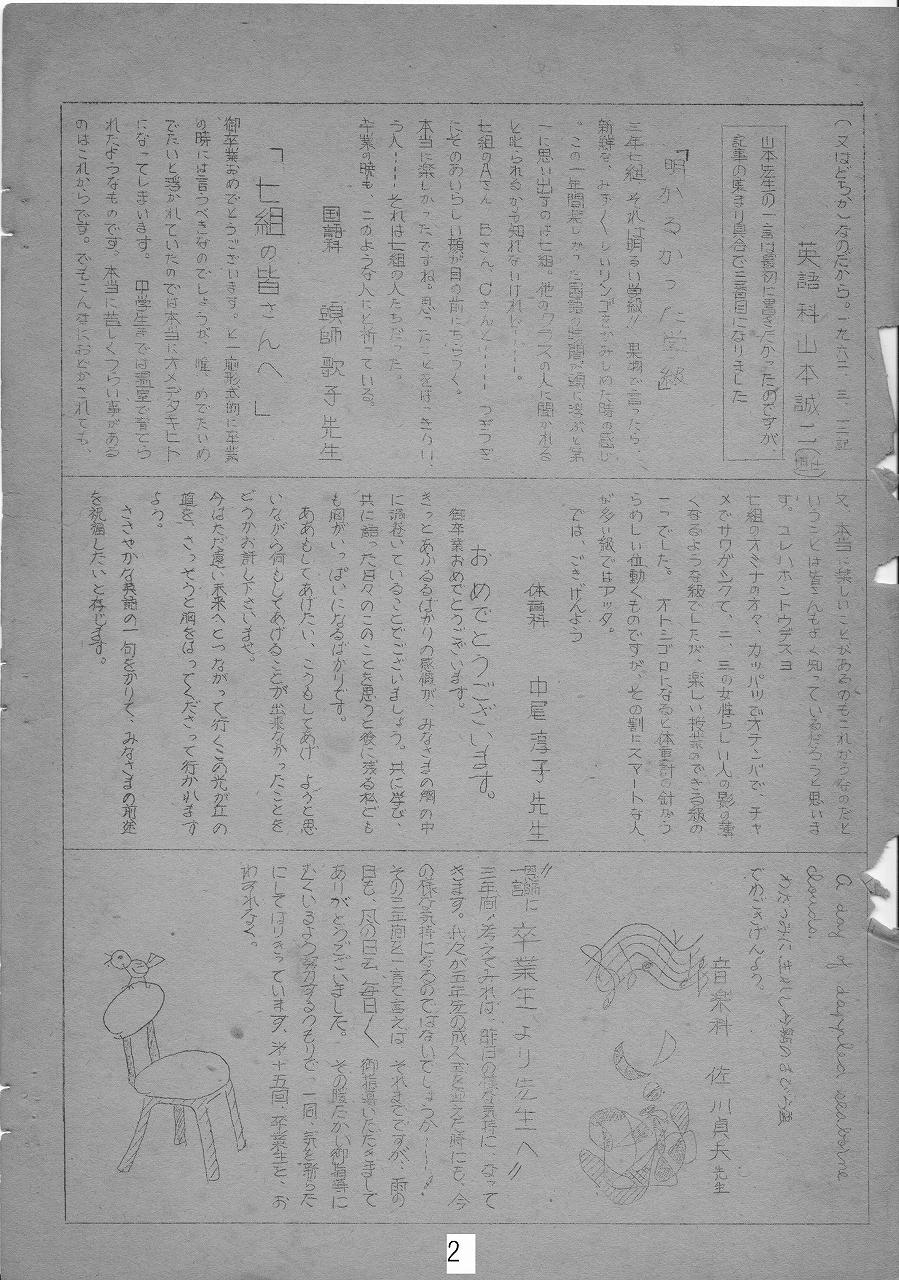 (又はどちか)なのだから。一九六二、三、三記
英語科 山本誠二
山本先生の一言は最初に書きたかったのですが、
記事の集まり具合で三番目になりました
「明かるかった学級」
三年七組、それは明るい学級!! 果物で言ったら、
新鮮な、みずくしいリンゴをかみしめた時の感じ
。この一年間楽しかった国語の時間が頭に浮ぶと第
一に思い出すのは七組。他のクラスの人に聞かれる
と叱られるかも知れないけれど……。
七組のAさん、Bさん、Cさんと……つぎつぎ
にそのあいらしい顔が目の前にちらつく。
本当に楽しかったですね。思ったことをはっきりい
う人……それは七組の人たちだった。
卒業の暁も、このような人にと祈っている。
国語科 頭師歌子先生
「七組の皆さんへ」
御卒業おめでとうございます。と一応形式的に卒業
の時には言うべきなのでしょうが、唯、めでたいめ
でたいと浮かれていたのでは本当にオメデタキヒト
になってしまいます。中学生までは温室で育てら
れたようなものです。本当に苦しくつらい事がある
のはこれからです。でもそんなにおどかされても、
又、本当に楽しいことがあるのもこれからなのだと
いうことは皆さんもよく知っているだろうと思いま
す。コレハホントウデスヨ
七組のオミナのオ々、カッパツでオテンバで、チャ
メでサワガシクて、二、三の女性らしい人の影の薄
くなるような級でしたが、楽しい授業のできる級の
一つでした。オトシゴロになると体重計の針がう
らめしい位動くものですが、その割にスマートな人
が多い級ではアッタ。
では、ごきげんよう
体育科 中尾淳子先生
おめでとうございます。
御卒業おめでとうございます。
きっとあふるるばかりの感慨が、みなさまの胸の中
に渦巻いていることでございましょう。共に学び、
共に語った日々のこのことを思うと後に残る私ども
も胸がいっぱいになるばかりです。
ああもしてあげたい、こうもしてあげようと思
いながら何もしてあげることが出来なかったことを
どうかお許し下さいませ。
今はただ遠い未来へとつながって行くこの光が丘の
道を、さっそうと胸をはってくださって行かれます
よう。
ささやかな英語の一句をかりて、みなさまの前途
を祝福したいと存じます。
A day of dapples seaborne
clouds.
でわごきげんよう。
音楽科 佐川貞夫先生
恩師に一言
〃卒業生より先生へ〃
三年間!考えてみれば、昨日の様な気持に、なって
きます。我々が五年先の成人式を迎えた時にも、今
の様な気持になるのではないでしょうか〜〜!
その三年間を一言で言えば それまでですが、雨の
日も、風の日も、毎日く、御指導いただきまして
ありがとうございました。その暖たかい御指導に
むくいるよう努力するつもりで、一同、気を新らた
にしてはりきっています。第十五回、卒業生を、お
わすれなく。
2